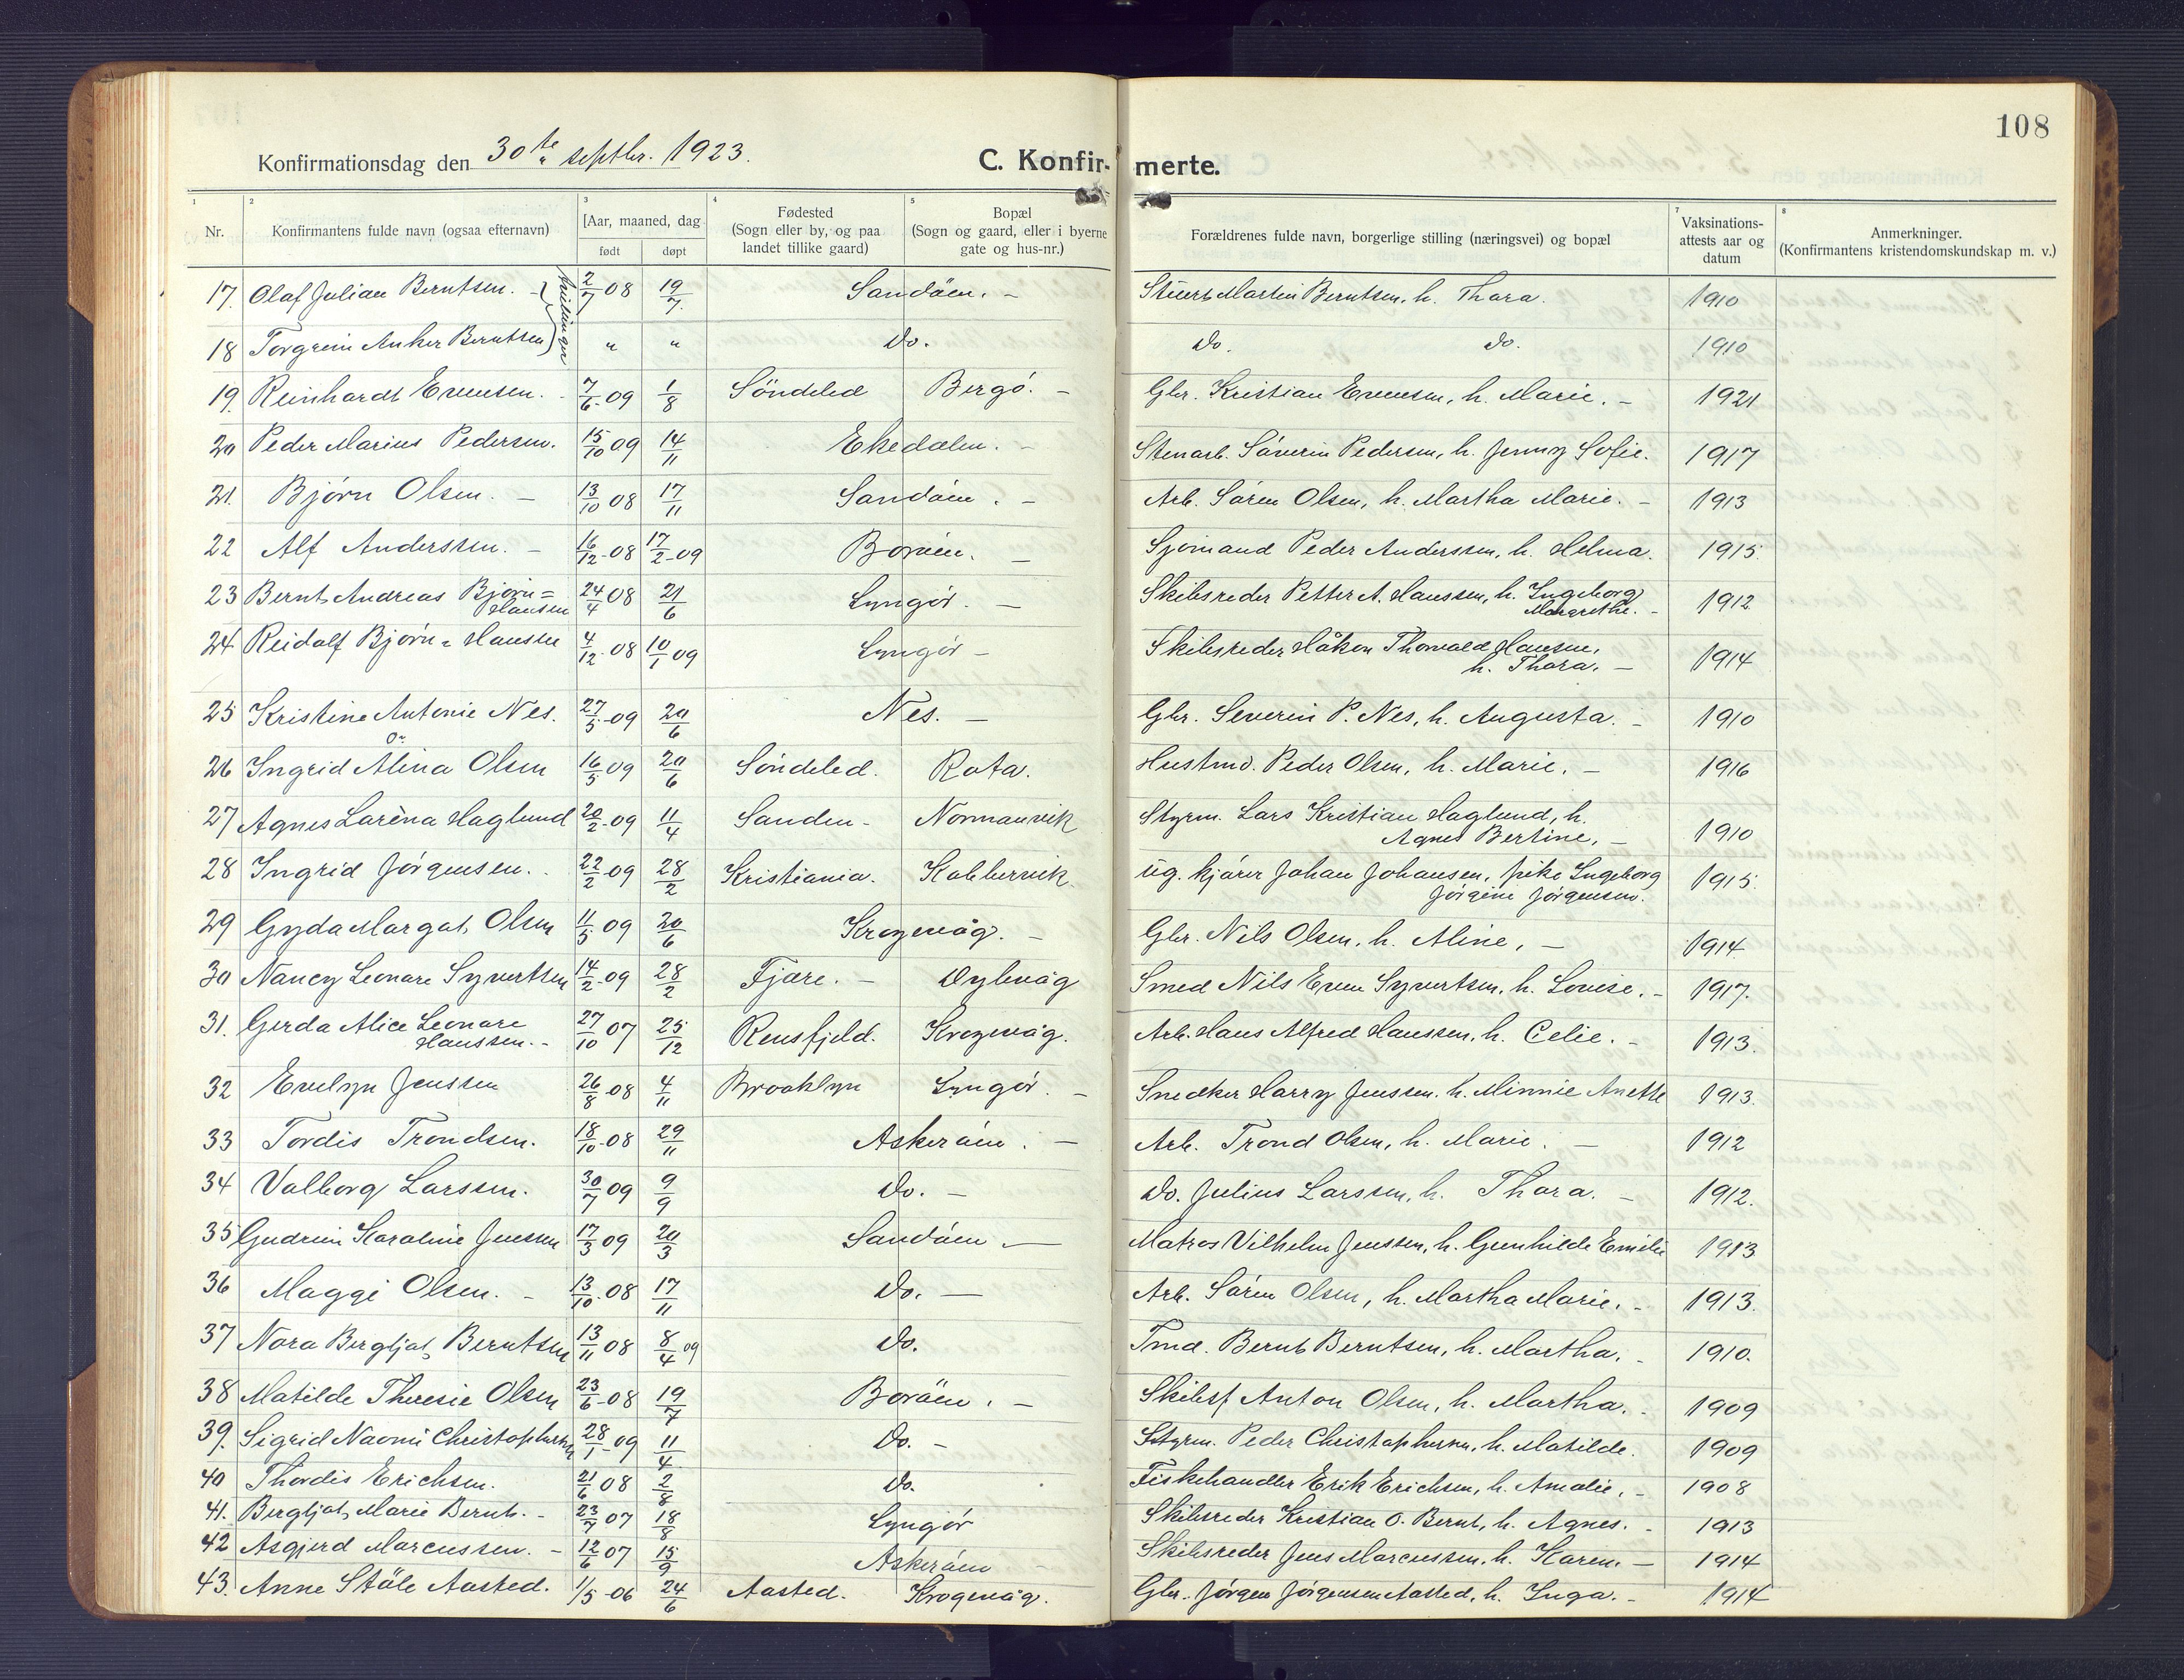 108
Konfirmationsdag den 30te septbr. 1923.
C. Konfirmerte.
1 Nr.
2 Konfirmantens fulde navn (ogsaa efternavn)
3 [Aar, maaned, dag
født døpt
4 Fødested (Sogn eller by, og paa landet tillike gaard)
5 Bopæl (Sogn og gaard, eller i byerne gate og hus-nr.)
Forældrenes fulde navn, borgerlige stilling (næringsvei) og bopæl
7 Vaksinations-attests aar og datum
8 Anmerkninger. (Konfirmantens kristendomskundskap m. v.)
17. Olaf Julian Berntsen. - } tvillinger 2/7 08 19/7. Sandöen. - Stuert Martin Berntsen, h. Thara. 1910
18 Torgrein Anker Berntsen } " " Do. Do. Do. 1910
19. Reinhardt Evensen. - 7/6-09 1/8 Söndeled Bergö. - Gbr. Kristian Evensen, h. Marie. - 1921
20 Peder Marius Pedersen. 15/10 09 14/11 Ekedalen. - Stenarb. Söverin Pedersen, h. Jenny Sofie. 1917
21. Bjørn Olsen. - 13/10 08 17/11 Sandöen. - Arb. Sören Olsen, h. Martha Marie. - 1913
22 Alf Anderssen. - 16/12-08 17/2-09 Boröen. - Sjömand Peder Anderssen, h. Helma. 1915
23 Bernt Andreas Bjørn=Hansen 24/4 08 21/6 Lyngör. - Skibsreder Petter A. Hanssen, h. Ingeborg Margrethe. - 1912
24 Reidolf Bjørn=Hansen 4/12-08 10/1 09 Lyngör - Skibsreder Håkon Thorvald Hansen, h. Thora. - 1914
25 Kristine Antonie Nes. 27/5-09 20/6 Nes. - Gbr. Severin P. Nes, h. Augusta. - 1910
26 Ingrid Alina Olsen 16/5 09 20/6 Söndeled. Rota. Hustmd. Peder Olsen, h. Marie. - 1916
27 Agnes Laréna Haglund 20/2-09 11/4 Sanden - Normanvik Styrm. Lars Kristian Haglund, h. Agnes Bertine, - 1910
28 Ingrid Jörgensen. - 22/2-09 28/2 Kristiania. Kabbervik ug. kjörer Johan Johansen, pike Ingeborg Jörgine Jörgensen. 1915.
29 Gyda Margot Olsen 11/5 09 20/6 Krogevåg. - Gbr. Nils Olsen. h. Aline, - 1914
30 Nancy Leonare Syvertsen 14/2-09 28/2 Fjære. - Dybvåg Smed Nils Even Syvertsen, h. Lovise. - 1917.
31. Gerda Alice Leonare Hanssen. - 27/10 07 25/12 Rensfjeld. Krogevåg. Arb. Hans Alfred Hanssen, h. Celie. - 1913.
32 Evelyn Jenssen 26/8-08 4/11 Brooklyn Lyngör. - Snedker Harry Jenssen. h. Minnie Anette 1913.
33 Tordis Trondsen. 18/10-08 29/11 Askeröen. - Arb. Trond Olsen, h. Marie. - 1912
34 Valborg Larssen. 30/7 09 9/9 Do. - Do. Julius Larssen, h. Thora. - 1912.
35 Gudrun Karoline Jenssen 17/3 09 20/3 Sandöen - Matros Vilhelm Jenssen, h. Gunhilde Emilie 1913
36 Maggi Olsen. - 13/10-08 17/11 Do. - Arb. Sören Olsen, h. Martha Marie. - 1913.
37 Nora Bergljot Berntsen 13/11 08 8/4 09 Do. Tmd. Bernt Berntsen, h. Martha. - 1910.
38 Matilde Theresie Olsen 23/6-08 19/7 Boröen. - Skibsf Anton Olsen, h. Martha. - 1909
39. Sigrid Naomi Christophersen 28/1-09 11/4 Do. - Styrm. Peder Christophersen, h. Matilde. 1909
40 Thordis Erichsen. 21/6 08 2/8 Do. Fiskehandler Erik Erichsen, h. Amalie, - 1908
41. Bergljot Marie Bernt. - 23/7 07 18/8 Lyngör Skibsreder Kristian O. Bernt, h. Agnes. - 1913
42 Asgjerd Marcussen. - 12/6 07 15/9 Askeröen Skibsreder Jens Marcussen. h. Karen. - 1914
43. Anne Ståle Aasted. 1/5-06 24/6 Aasted. Krogevåg. Gbr. Jörgen Jörgensen Aasted, h. Inga. - 1914